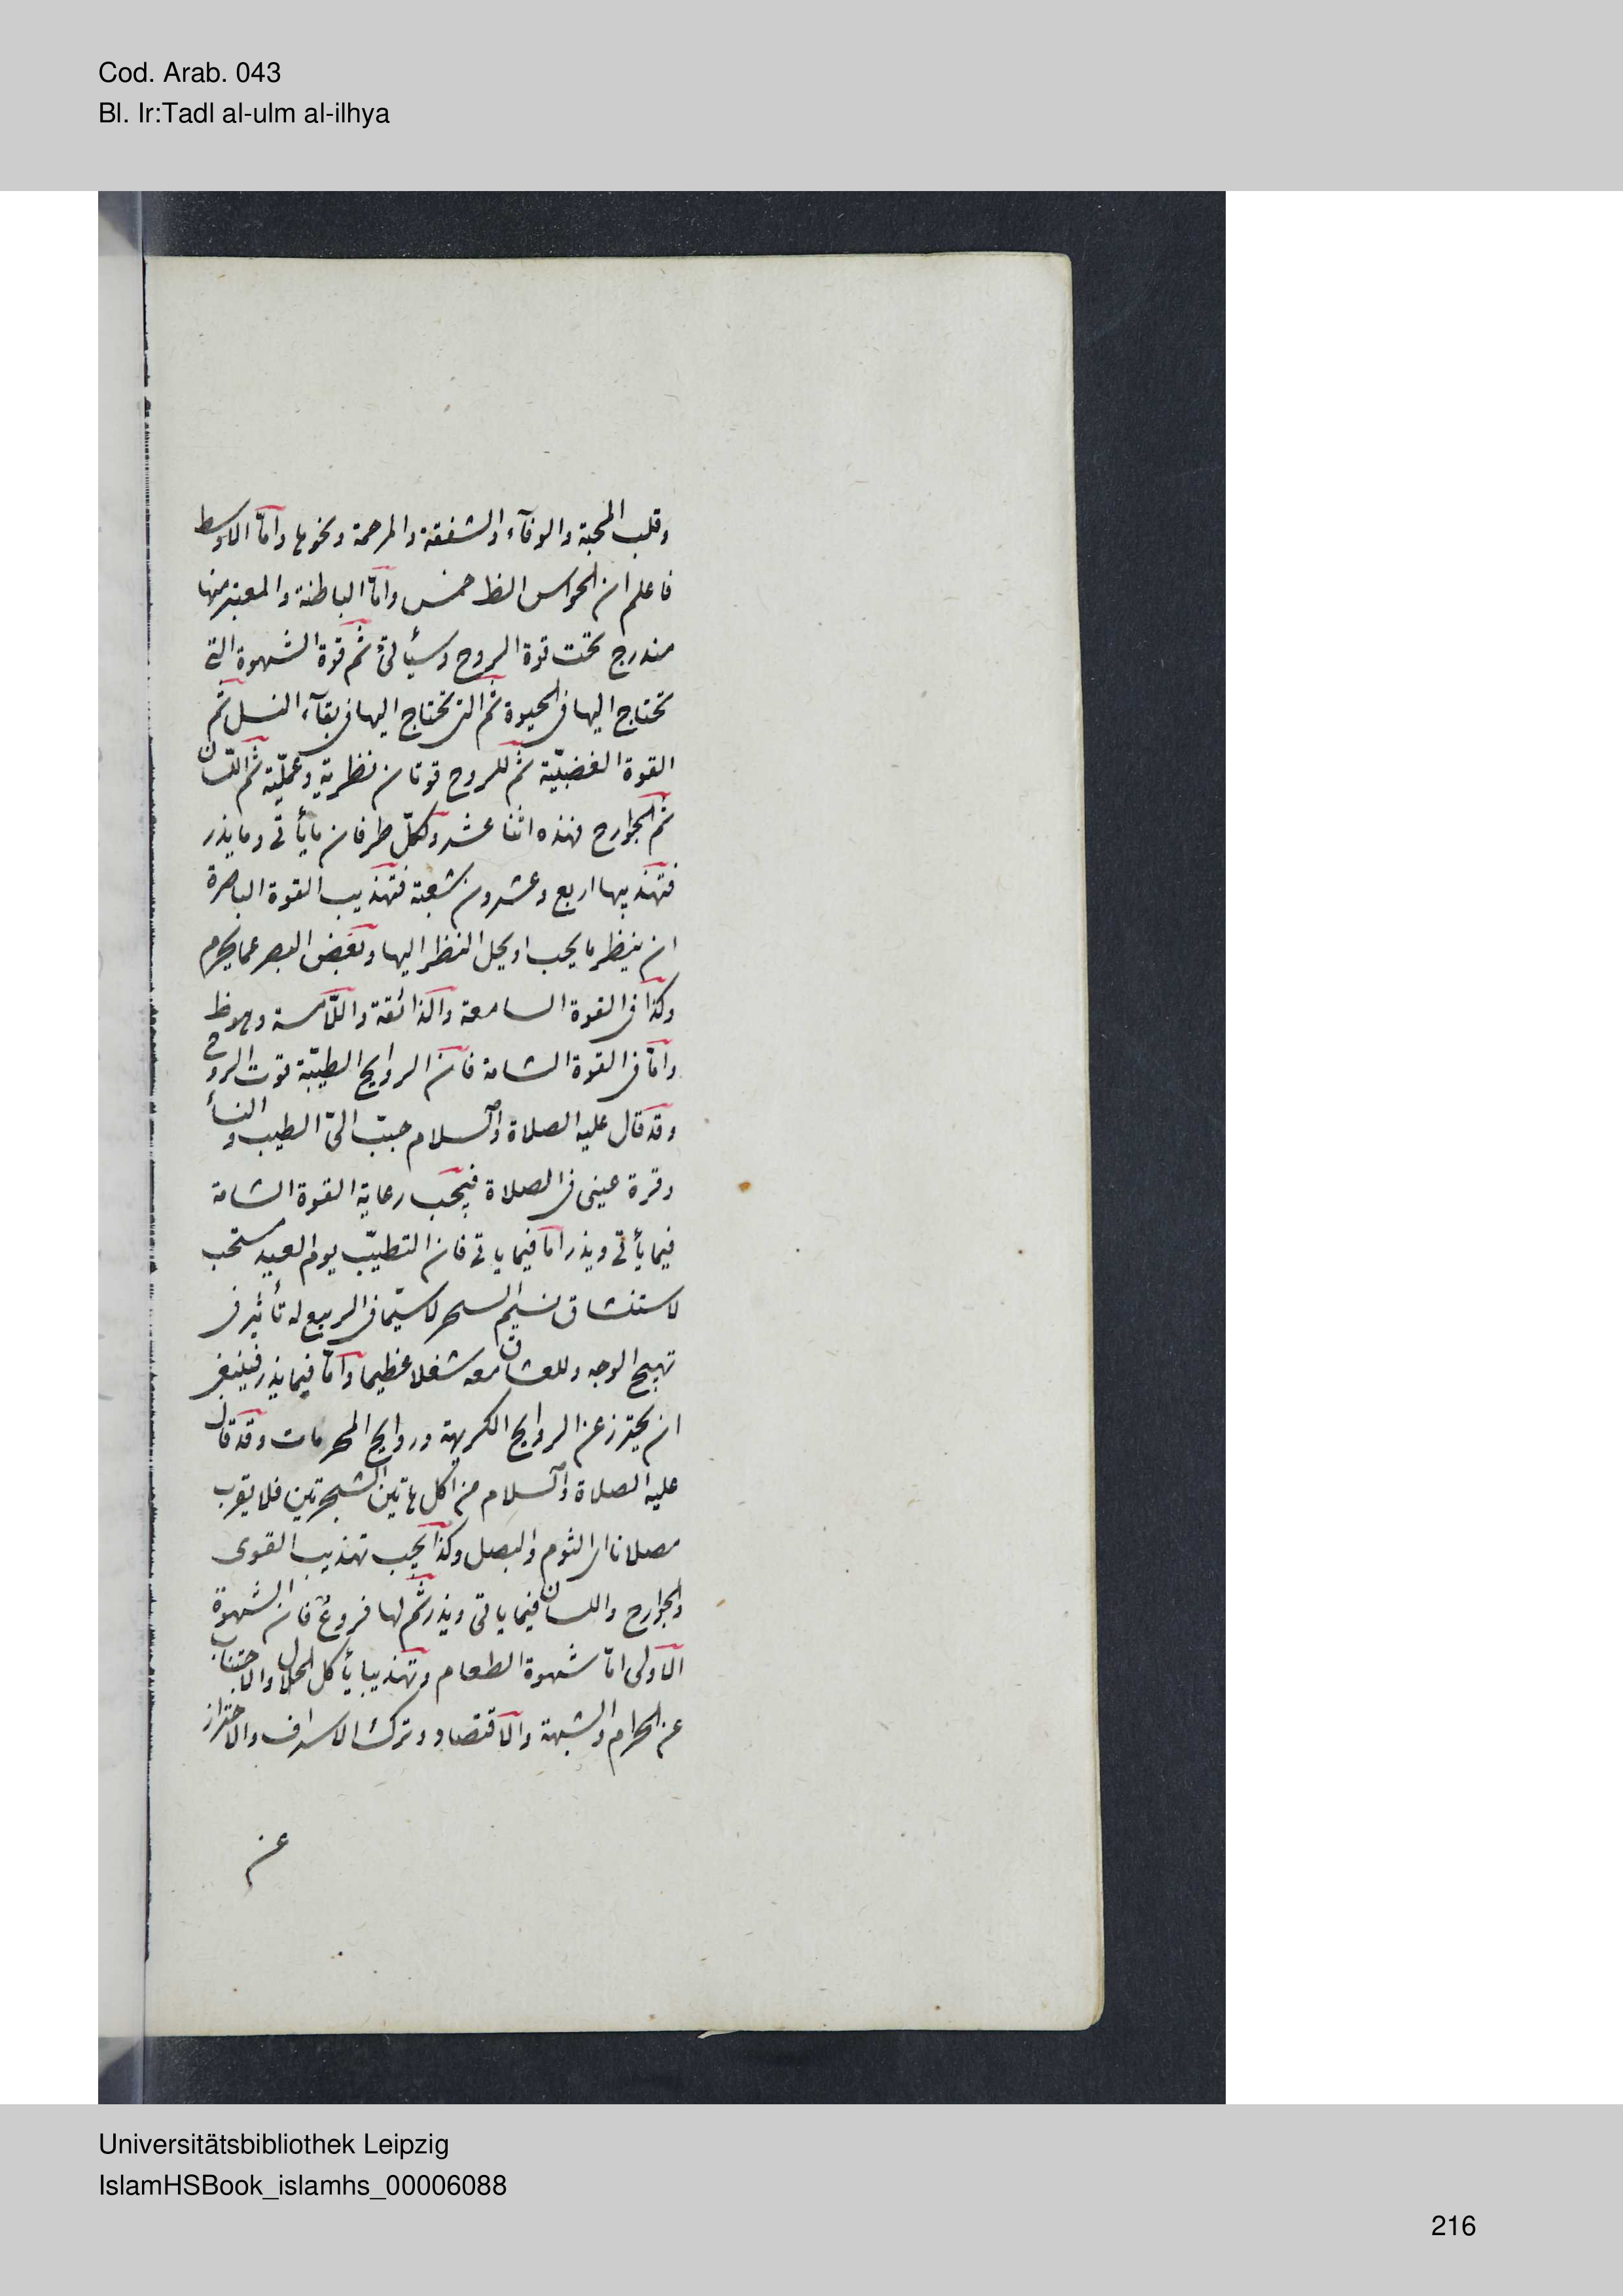 Cod. Arab. 043
Bl. Ir:Tadl al-ulm al-ilhya
وقلب المحبة والوفآء والشفقة والمرحمة ونحوها وامّا الاوسط
فاعلم ان الحواس الظ خمس وامّا الباطنة والمعتبر منها
مندرج تحت قوة الروح وسيأتى ثم قوة الشهوة التى
تحتاج اليها فى الحيوة ثم التى تحتاج اليها فى بقآء النسل ثم
القوة الغضبيّة ثم للروح قوتان نظرية وعمليّة ثم اللسان
ثم الجوارح فهذه اثنا عشر ولكلّ طرفان ما يأتى وما يذر
فتهذيبها اربع وعشرون شعبة فتهذيب القوة الباصرة
ان ينظر ما يجب او يحل النظر اليها ويغض البصر عما يحرم
وكذا فى القوة السامعة والذائقة واللّامسة وهو ظ
وامّا فى القوة الشامة فان الروايح الطيّبة قوت الروح
وقد قال عليه الصلاة والسلام حبّب الىّ الطيب والنسأ
وقرة عينى فى الصلاة فيجب رعاية القوة الشامة
فيما يأتى ويذر امّا فيما ياتى فان التطيّب يوم العيد مستحب
لاستنشاق نسيم السحر لا سيّما فى الربيع له تأثير فى
تهيج الوجد وللعشاق معه شغلا عظيما وامّا فيما يذر فينبغى
ان يحترز عن الروايح الكريهة وروايح المحرمات وقد قال
عليه الصلاة والسلام من اكل هاتين الشجرتين فلا يقرب
مصلانا اى الثوم والبصل وكذا يجب تهذيب القوى
والجوارح واللسان فيما ياتى ويذر ثم لها فروع فان الشهوة
الاولى امّا شهوة الطعام وتهذيبها يأكل الحلال والاجتناب
عن الحرام والشبهة والاقتصاد وترك الاسراف والاحتراز
عن
Universitätsbibliothek Leipzig
IslamHSBook_islamhs_00006088
216